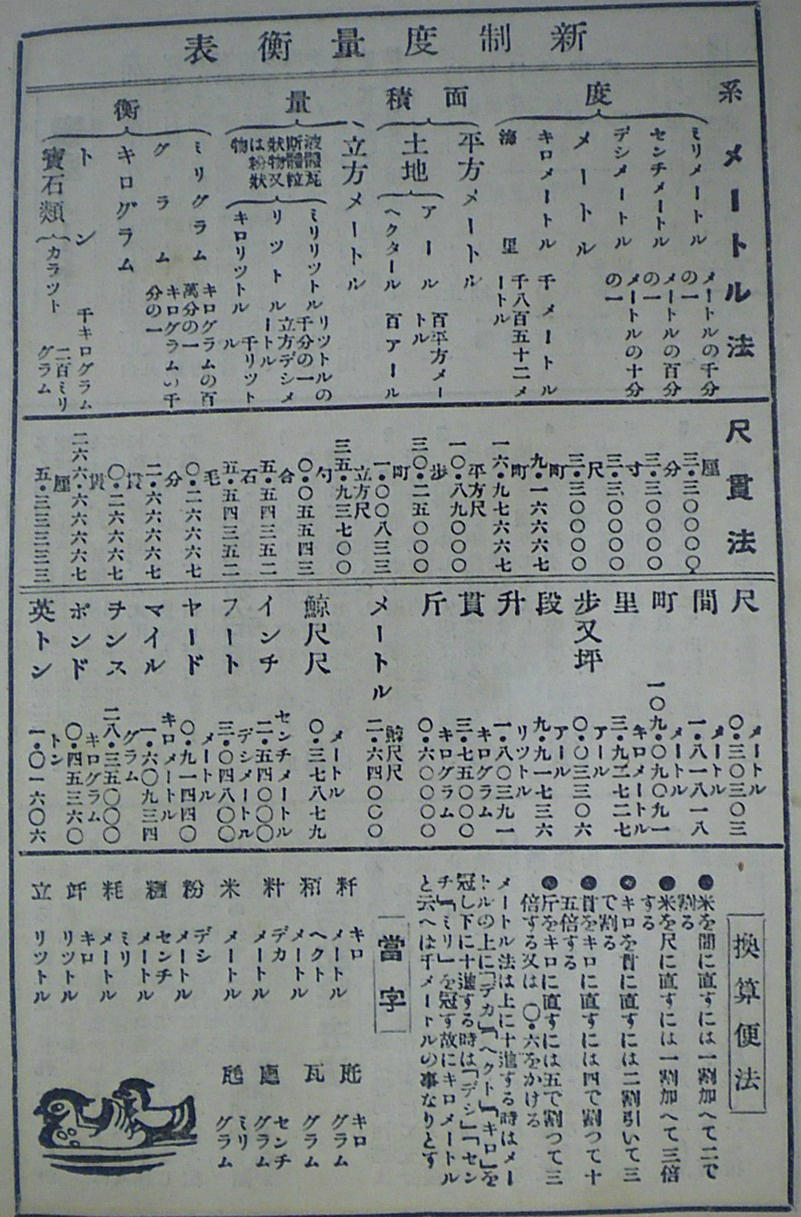 新制度量衡表
系
メートル法
度
ミリメートル
メートルの千分の一
センチメートル
メートルの百分の一
デシメートル
メートルの十分の一
メートル
キロメートル
千メートル
海里
千八百五十二メートル
面積
平方メートル
土地
アール
百平方メートル
ヘクタール
百アール
量
立方メートル
液體瓦斯體粒狀物又は粉狀物
ミリリツトル
リツトルの千分の一
リツトル
立方デシメートル
キロリツトル
千リツトル
衡
ミリグラム
キログラムの百萬分の一
グラム
キログラムの千分の一
キログラム
トン
千キログラム
寶石類
カラツト
二百ミリグラム
尺貫法
厘
三・三〇〇〇〇
分
三・三〇〇〇〇
寸
三・三〇〇〇〇
尺
三・三〇〇〇〇
町
九・一六六六七
町
一六・九七六六七
平方尺
一〇・八九〇〇〇
歩
三〇・二五〇〇〇
町
一・〇〇八三三
立方尺
三五・九三七〇〇
勺
〇・〇五五四三
合
五・五四三五二
石
五・五四三五二
毛
〇・二六六六七
分
二・六六六六七
貫
〇・二六六六七
貫
二六六・六六六六七
厘
五・三三三三三
尺
メートル
〇・三〇三〇三
間
メートル
一・八一八一八
町
メートル
一〇九・〇九〇九一
里
キロメートル
三・九二七二七
歩又坪
アール
〇・〇三三〇六
段
アール
九・九一七三六
升
リツトル
一・八〇三九一
貫
キログラム
三・七五〇〇〇
斤
キログラム
〇・六〇〇〇〇
メートル
鯨尺尺
二・六四〇〇〇
鯨尺尺
メートル
〇・三七八七九
インチ
センチメートル
二・五四〇〇〇
フート
デシメートル
三・〇四八〇〇
ヤード
メートル
〇・九一四四〇
マイル
キロメートル
一・六〇九三四
オンス
グラム
二八・三五〇〇〇
ポンド
キログラム
〇・四五三六〇
英トン
トン
一・〇一六〇六
換算便法
●米を間に直すには一割加へて二で割る
●米を尺に直すには一割加へて三倍する
●キロを貫に直すには二割引いて三で割る
●貫をキロに直すには四で割つて十五倍する
●斤をキロに直すには五で割つて三倍する又は〇・六をかける
メートル法は上に十進する時はメートルの上に「デカ」「ヘクト」「キロ」を冠し下に十進する時は「デシ」「センチ」「ミリ」を冠す故にキロメートルと云へは千メートルの事なりとす
當字
粁
キロメートル
粨
ヘクトメートル
籵
デカメートル
米
メートル
粉
デシメートル
糎
センチメートル
粍
ミリメートル
竏
キロリツトル
立
リツトル
瓩
キログラム
瓦
グラム
甅
センチグラム
瓱
ミリグラム